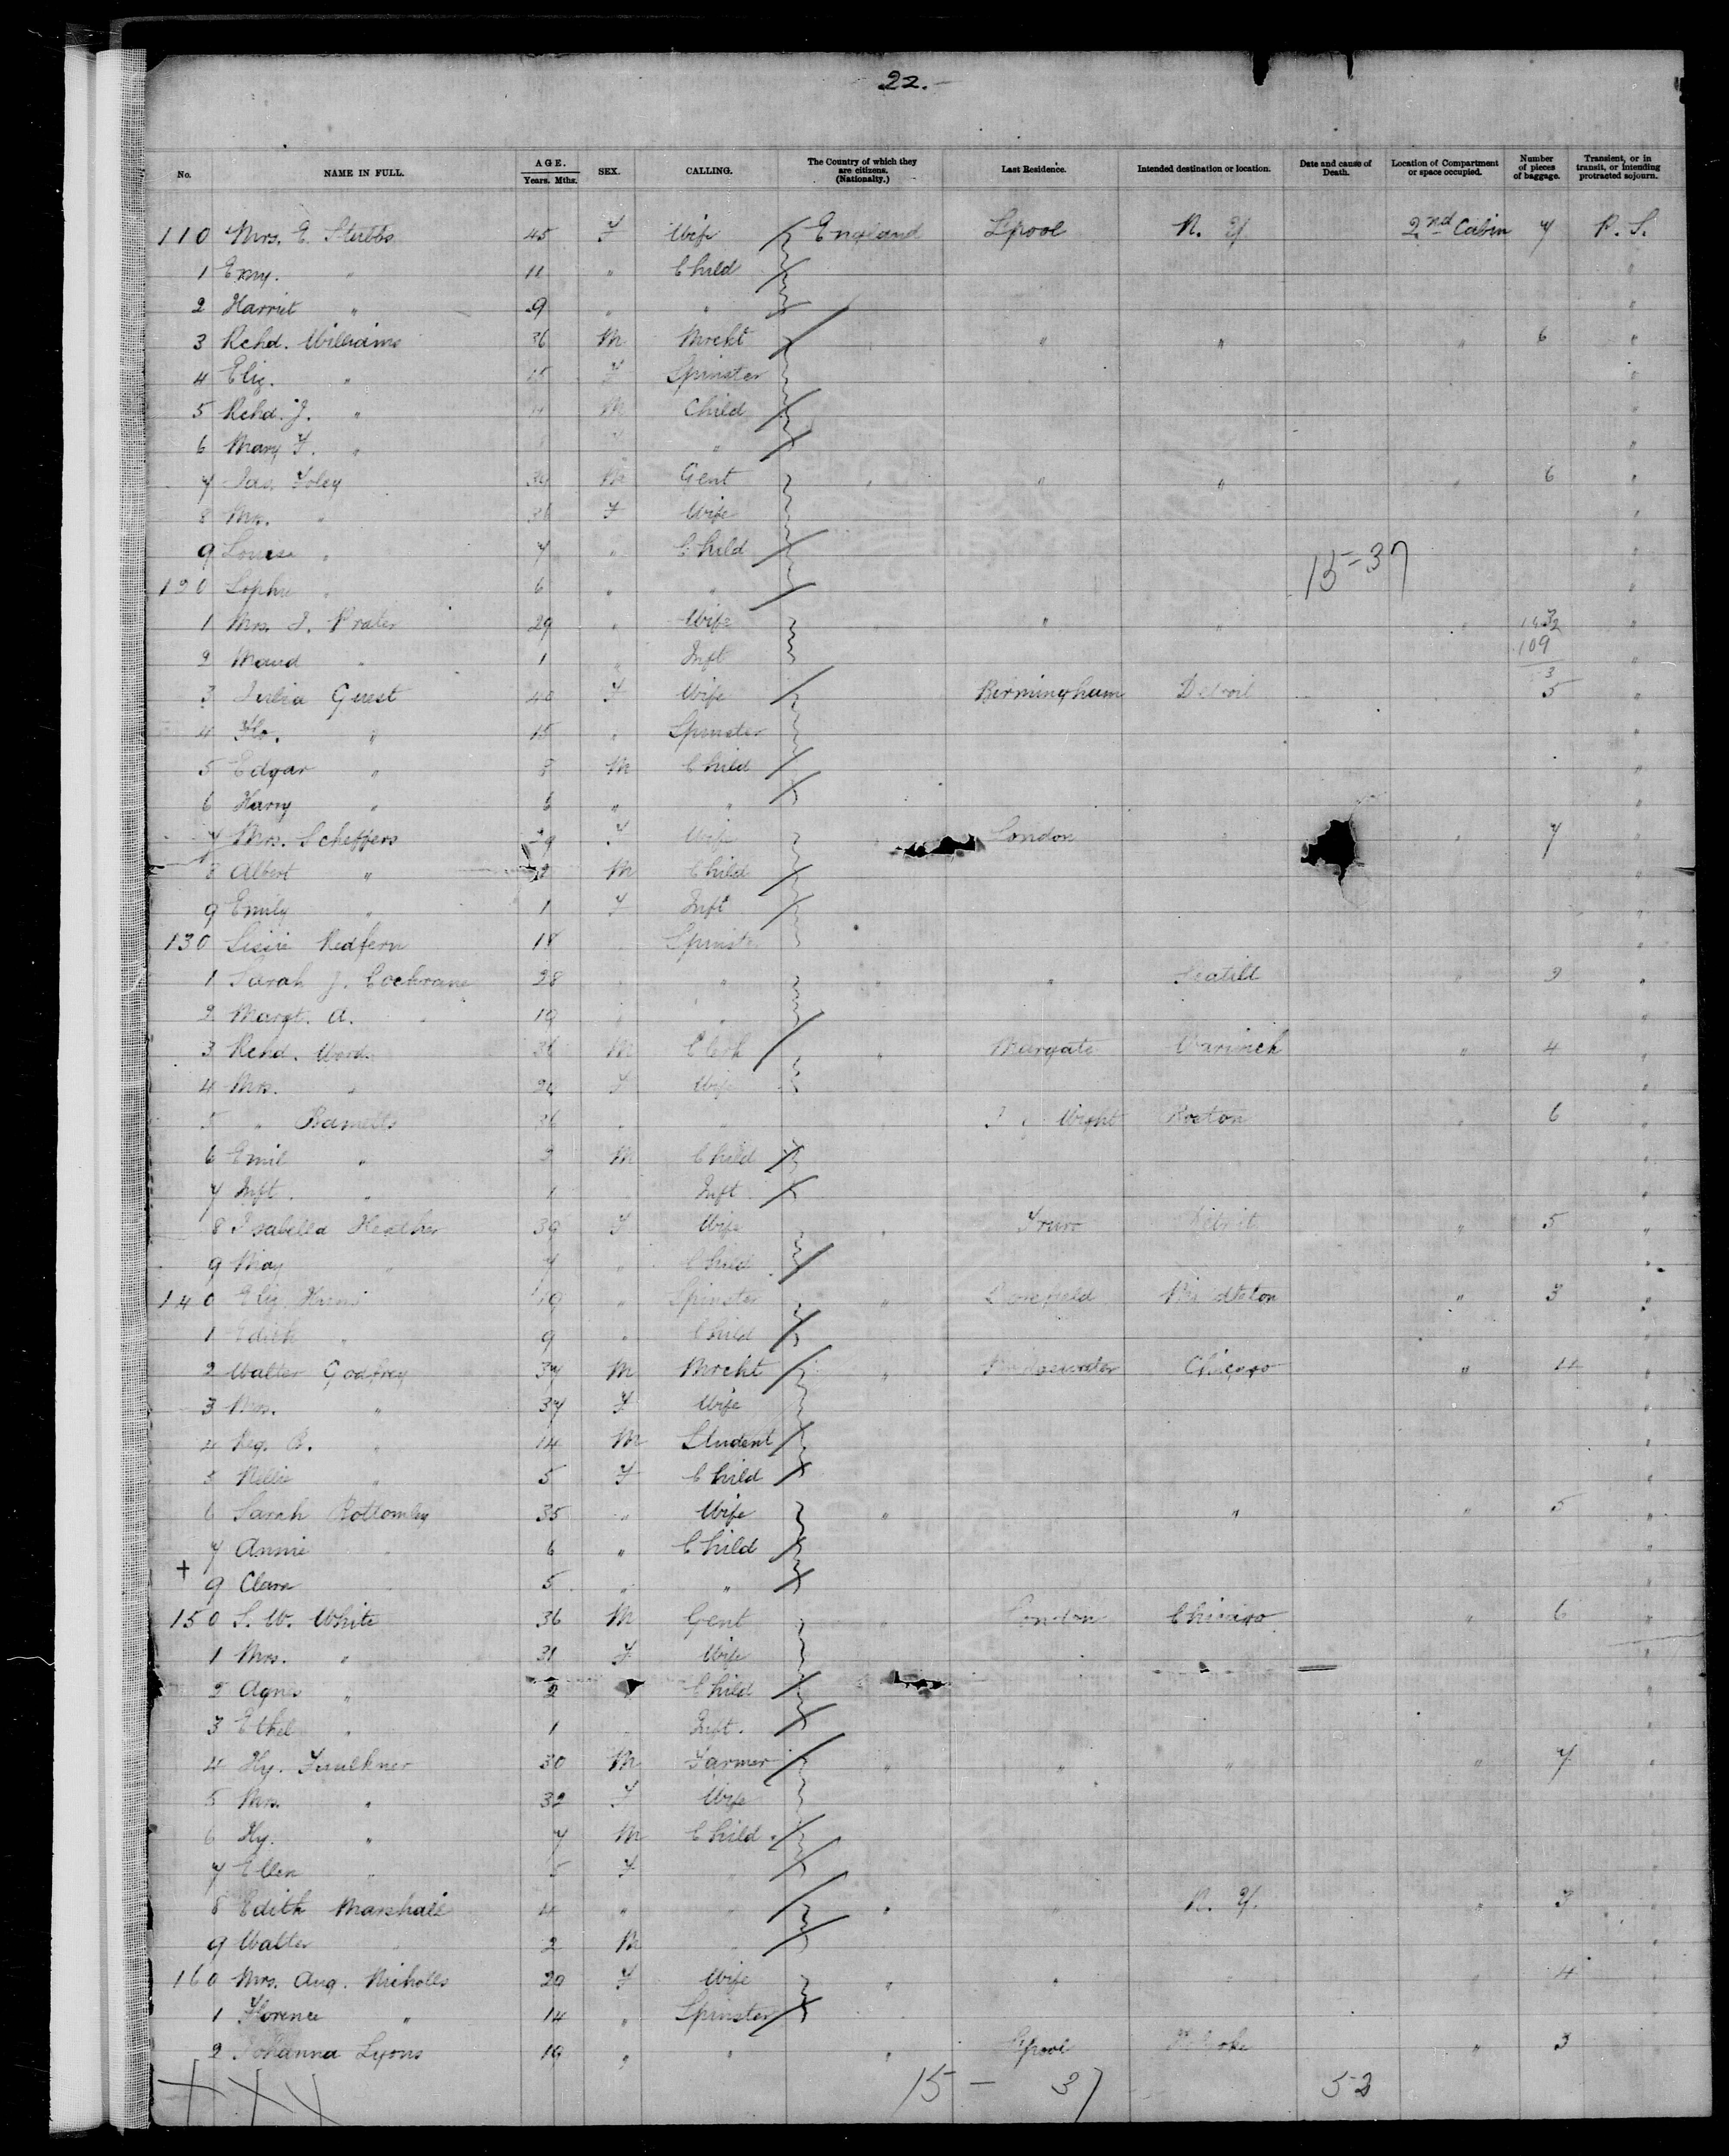 22.
No. NAME IN FULL. AGE. Years. Mths. SEX. CALLING. The Country of which they are citizens. (Nationalty.) Last Residence. Intended destination or location. Date and cause of Death. Location of Compartment or space occupied. Number of pieces of baggage. Transient, or in transit, or intending protracted sojourn.
110 Mrs. E. Stubbs 45 F Wife England Lpool N. Y. 2nd Cabin 7 P. S.
1 Emy. " 11 " Child "
2 Harriet " 9 " " "
3 Rchd. Williams 36 M Mrcht " " " 6 "
4 Eliz. " 15 F Spinster "
5 Rchd. J. " M Child "
6 Mary F. " " "
7 Jas. Foley M Gent " " " " 6 "
8 Mrs. " 36 F Wife "
9 Louisa " 7 " Child "
15-37
120 Sophie " 6 " " "
1 Mrs. J. Prater 29 " Wife " " " " "
109
2 Maud " 1 " Inft "
3 Julia Guest 40 F Wife Birmingham Detroit 5 "
4 Flo. " 15 " Spinster "
5 Edgar " 8 M Child "
6 Harry " 6 " " "
7 Mrs. Scheffers 29 F Wife London " 7 "
8 Albert " M Child "
9 Emily " 1 F Inft "
130 Lizzie Redfern 18 Spinster "
1 Sarah J. Cochrane 28 " " " " " "
2 Margt. A. " 19 " " "
3 Rchd. Ward 36 M Clerk " Margate " 4 "
4 Mrs. " 24 F Wife "
5 " 36 " " " Wight Boston " 6 "
6 Emil " M Child "
7 Inft. " 1 Inft "
8 Isabella Heather 39 F Wife " Truro Detroit " 5 "
9 May " 7 " Child "
140 Eliz. 19 " Spinster " Middleton " 3 "
1 Edith " 9 " Child "
2 Walter Godfrey 37 M Mrcht " Bridgewater Chicago " 4 "
3 Mrs. " 37 F Wife "
4 Reg. B. " 14 M Student "
5 Nellie " 5 F Child "
6 Sarah Bottomley 35 " Wife " " " 5 "
7 Annie " 6 " Child "
+ 9 Clara " 5 " " "
150 S. W. White 36 M Gent " London Chicago " 6 "
1 Mrs. " 31 F Wife "
2 Agnes " 2 Child "
3 Ethel " 1 " Inft. "
4 Hy. Faulkner 30 M Farmer " " " " 7 "
5 Mrs. " 32 F Wife "
6 Hy. " 7 M Child "
7 Ellen " 5 F " "
8 Edith Marshall 4 " " " " N. Y. " 3 "
9 Walter " 2 M " "
160 Mrs. Aug. Nicholls 29 F Wife " " " " 4 "
1 Florence " 14 " Spinster "
2 Johanna Lyons 19 " " " Lpool " 3 "
15 - 37 52